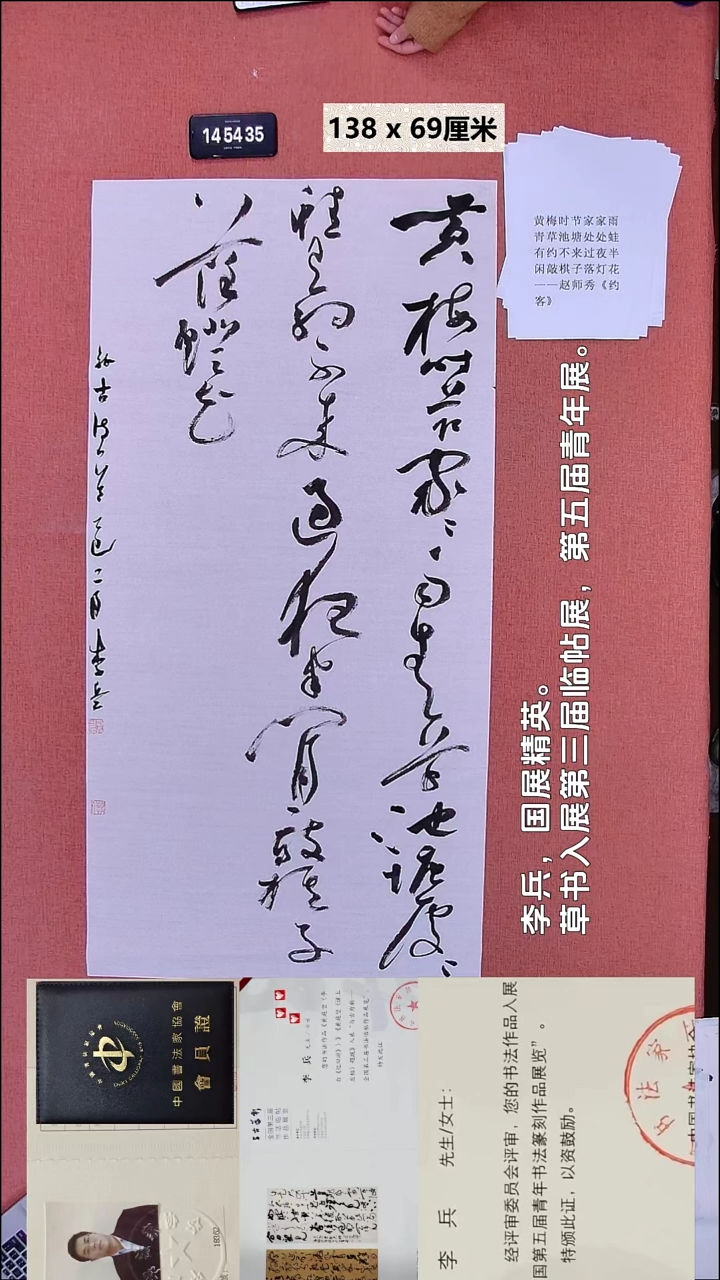 14 54 35
138 x 69厘米
黄梅时节家家雨
青草池塘处处蛙
有约不来过夜半
闲敲棋子落灯花
——赵师秀《约
客》
黄梅时节家〻雨青草池塘处〻
蛙有约不来过夜半闲敲棋子
落灯花
二月李兵
李兵，国展精英。
草书入展第三届临帖展，第五届青年展。
中國書法家協會
會員證
李 兵
全国第三届
李 兵 先生/女士：
经评审委员会评审，您的书法作品入展
国第五届青年书法篆刻作品展览”。
特颁此证，以资鼓励。